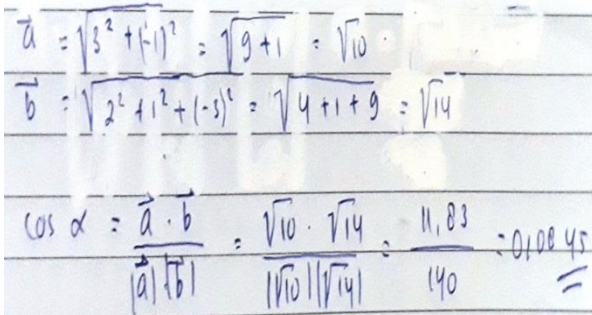 a⃗ = √3² + (-1)² = √9 + 1 = √10
b⃗ = √2² + 1² + (-3)² = √4 + 1 + 9 = √14
cos α = a⃗ · b⃗ / |a⃗| |b⃗| = √10 · √14 / |√10| |√14| = 11,83 / 140 = 0,0845